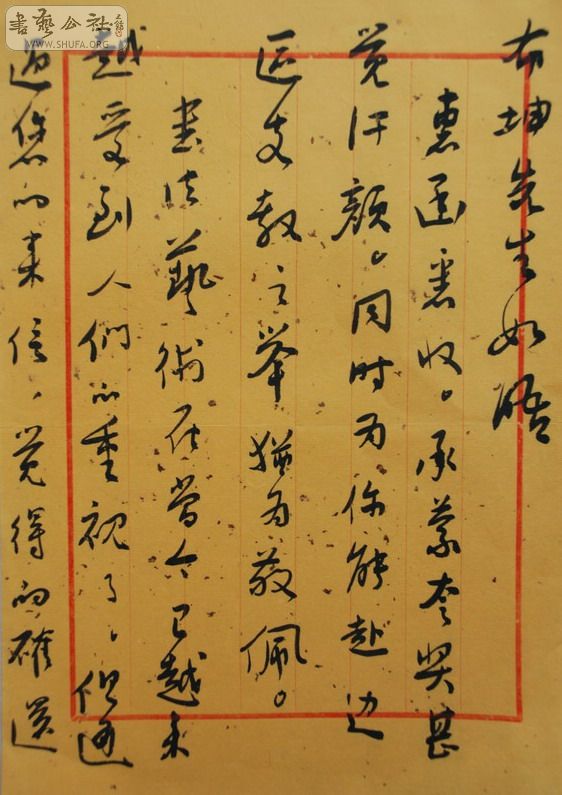 書藝公社
WWW.SHUFA.ORG
坤先生如晤
惠函悉收。承蒙夸奖甚
觉汗颜。同时为你能赴边
区支教之举犹为敬佩。
书法艺術在当今已越来
越受到人们的重视了。但通
过您的来信,觉得的確还